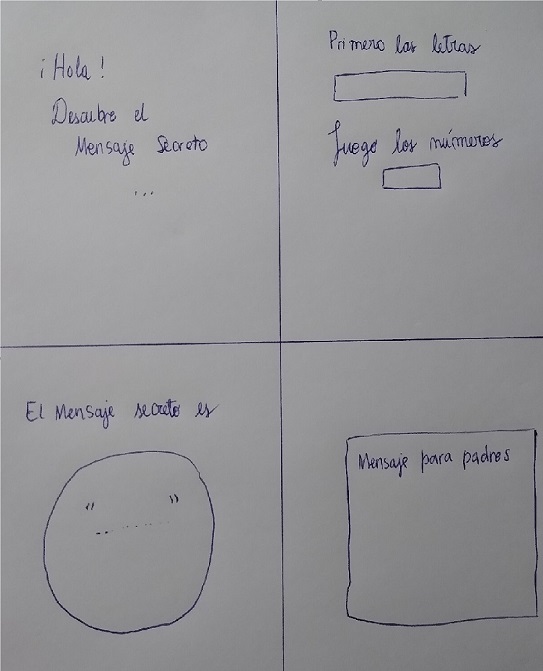 ¡Hola!
Descubre el
Mensaje Secreto
...
Primero las letras
Luego los números
El Mensaje secreto es
" "
Mensaje para padres